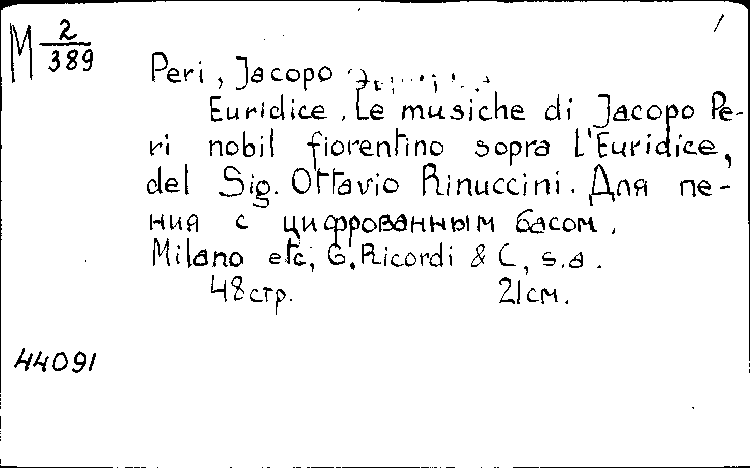 M 2/389
Peri, Jacopo
Euridice. Le musiche di Jacopo Pe-
ri nobil fiorentino sopra L'Euridice,
del Sig. Ottavio Rinuccini. Для пе-
ния с цифрованным басом.
Milano etc, G. Ricordi & C, s.a.
48 стр. 21 см.
44091